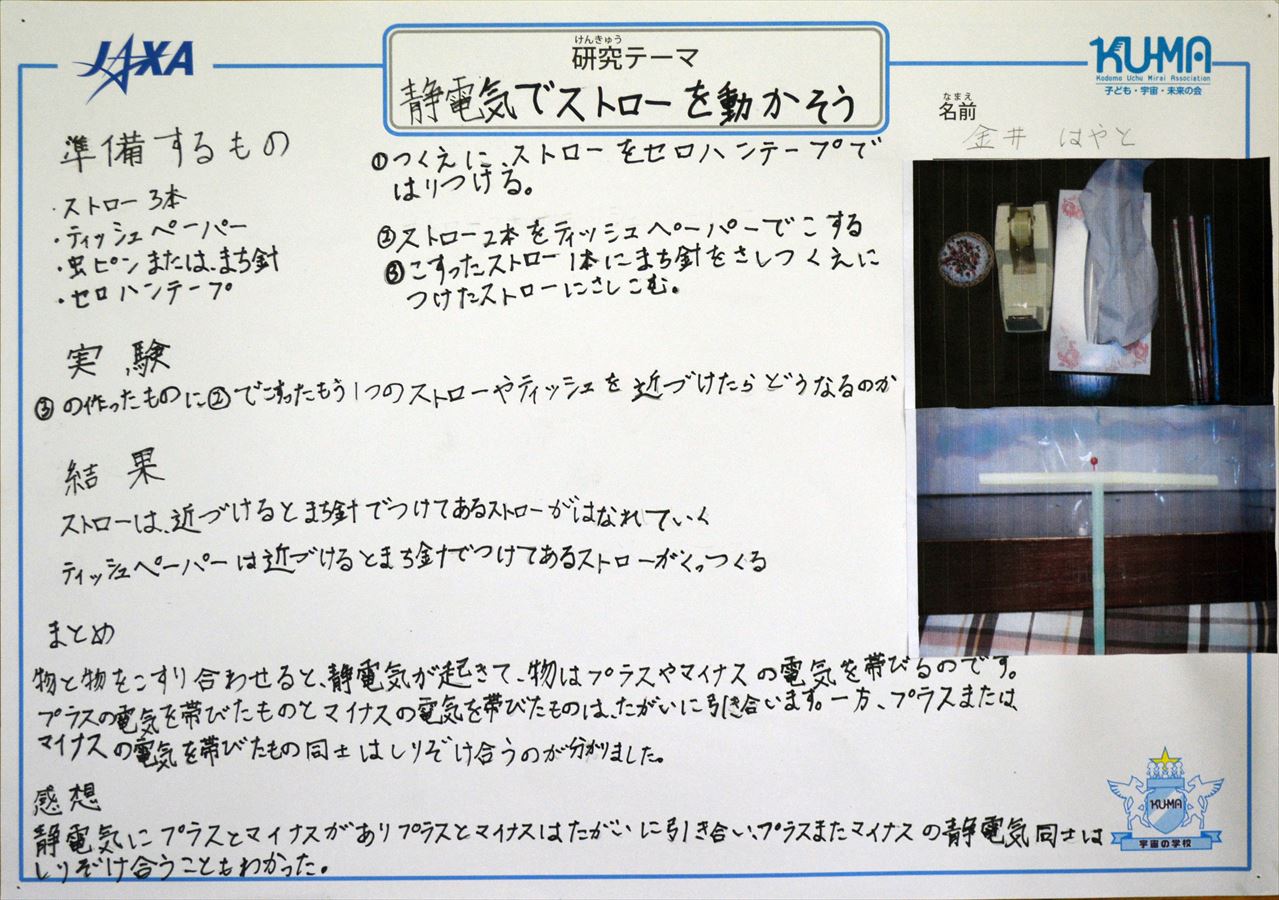 JAXA
けんきゅう
研究テーマ
静電気でストローを動かそう
KU-MA
Kodomo Uchu Mirai Association
子ども・宇宙・未来の会
なまえ
名前
金井 はやと
準備するもの
・ストロー3本
・ティッシュペーパー
・虫ピンまたは、まち針
・セロハンテープ
①つくえに、ストローをセロハンテープで
はりつける。
②ストロー2本をティッシュペーパーでこする
③こすったストロー1本にまち針をさしつくえに
つけたストローにさしこむ。
実験
③の作ったものに②でこすったもう1つのストローやティッシュを近づけたらどうなるのか
結果
ストローは、近づけるとまち針でつけてあるストローがはなれていく
ティッシュペーパーは近づけるとまち針でつけてあるストローがくっつくる
まとめ
物と物をこすり合わせると、静電気が起きて、物はプラスやマイナスの電気を帯びるのです。
プラスの電気を帯びたものとマイナスの電気を帯びたものは、たがいに引き合います。一方、プラスまたは
マイナスの電気を帯びたもの同士はしりぞけ合うのが分かりました。
感想
静電気にプラスとマイナスがありプラスとマイナスはたがいに引き合い、プラスまたマイナスの静電気同士は
しりぞけ合うこともわかった。
KU-MA
宇宙の学校